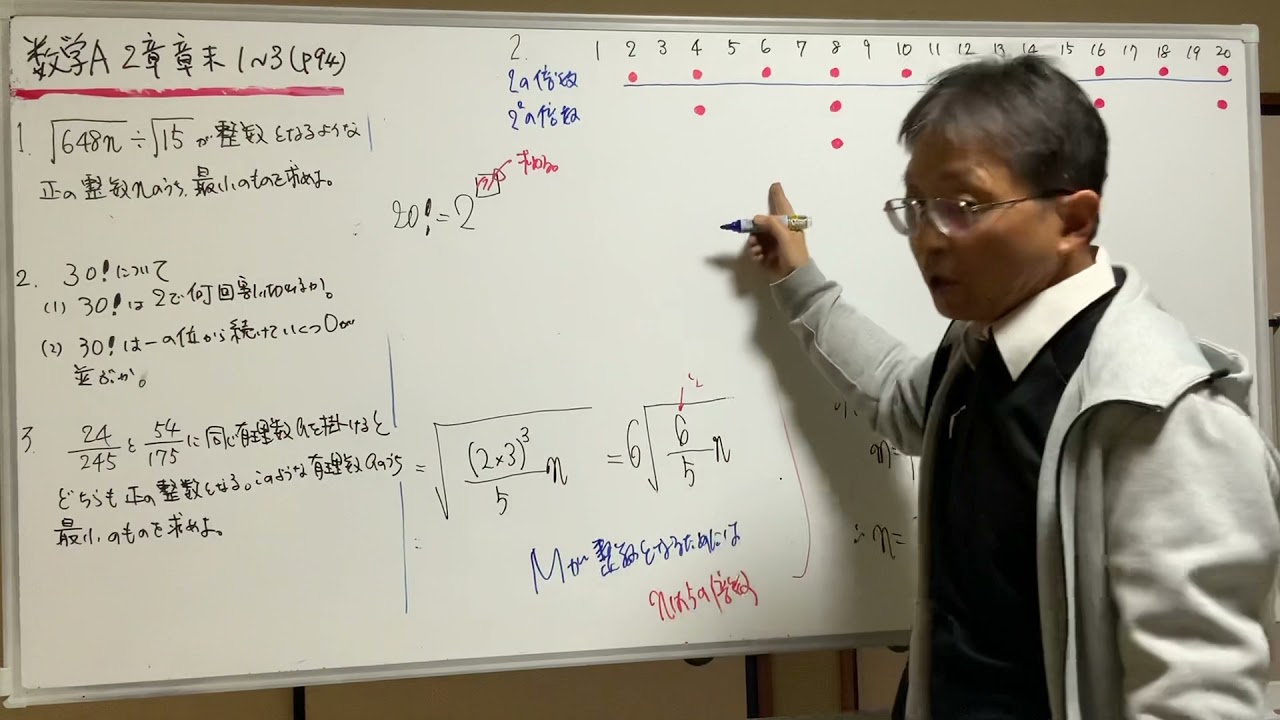 数学A 2章章末 1~3(p94)
1. √648n ÷ √15 が整数となるような
正の整数nのうち、最小のものを求めよ。
2. 30!について
(1) 30!は2で何回割り切れるか。
(2) 30!は一の位から続けていくつ0が
並ぶか。
3. 24/245 と 54/175 に同じ有理数aを掛けると
どちらも正の整数となる。このような有理数aのうち
最小のものを求めよ。
2. 1 2 3 4 5 6 7 8 9 10 11 12 13 14 15 16 17 18 19 20
2の倍数
2²の倍数
求める。
20! = 2
= √((2×3)³/5 n) = 6√(6/5 n)
Mが整数となるためには
nは5の倍数
n=
∴ n=